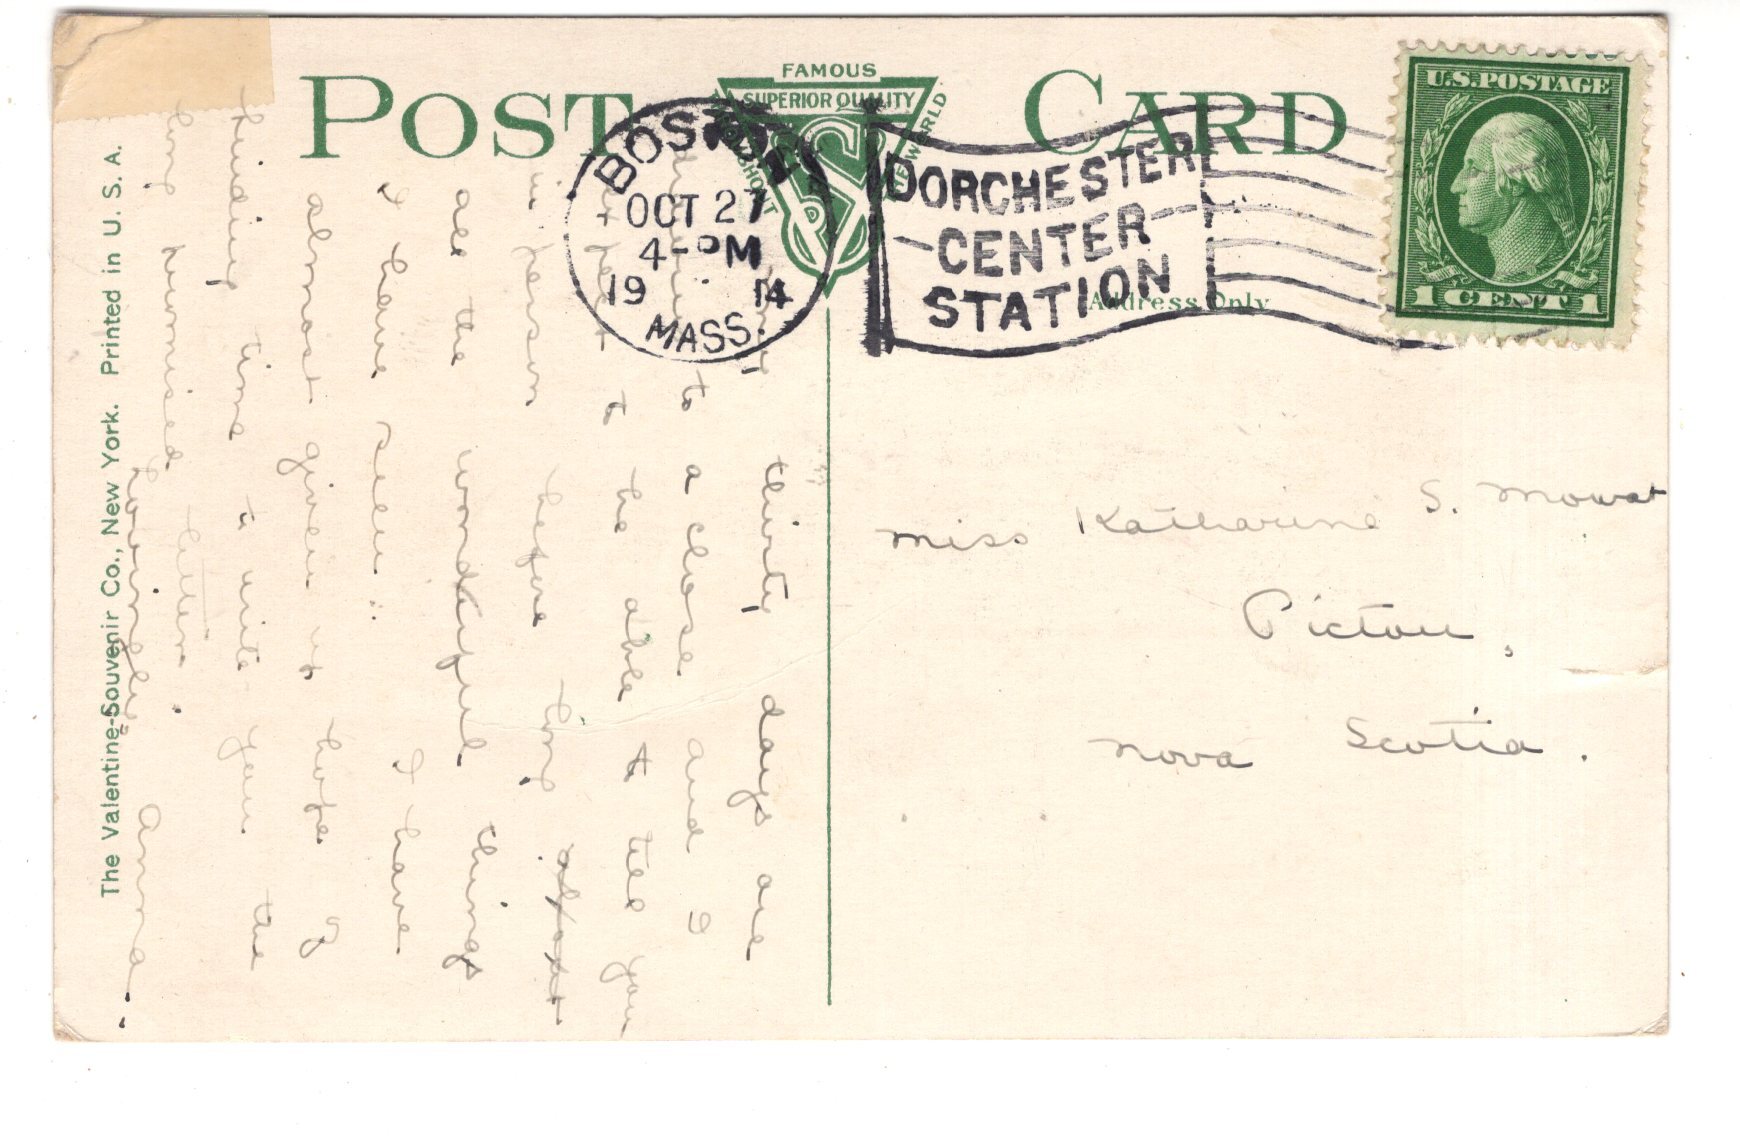 POST CARD
FAMOUS
SUPERIOR QUALITY
THROUGHOUT THE WORLD
BOSTON
OCT 27
4-PM
19 14
MASS.
DORCHESTER
CENTER
STATION
U.S.POSTAGE
1 CENT 1
Address Only
Miss Katharine S. Mowat
Pictou,
Nova Scotia.
thirty days are
to a close and I
expect to be able to tell you
in person before long.
all the wonderful things
I have seen. I have
almost given up hope of
finding time to write you the
long promised letter.
Lovingly
Anna.
The Valentine-Souvenir Co., New York. Printed in U. S. A.